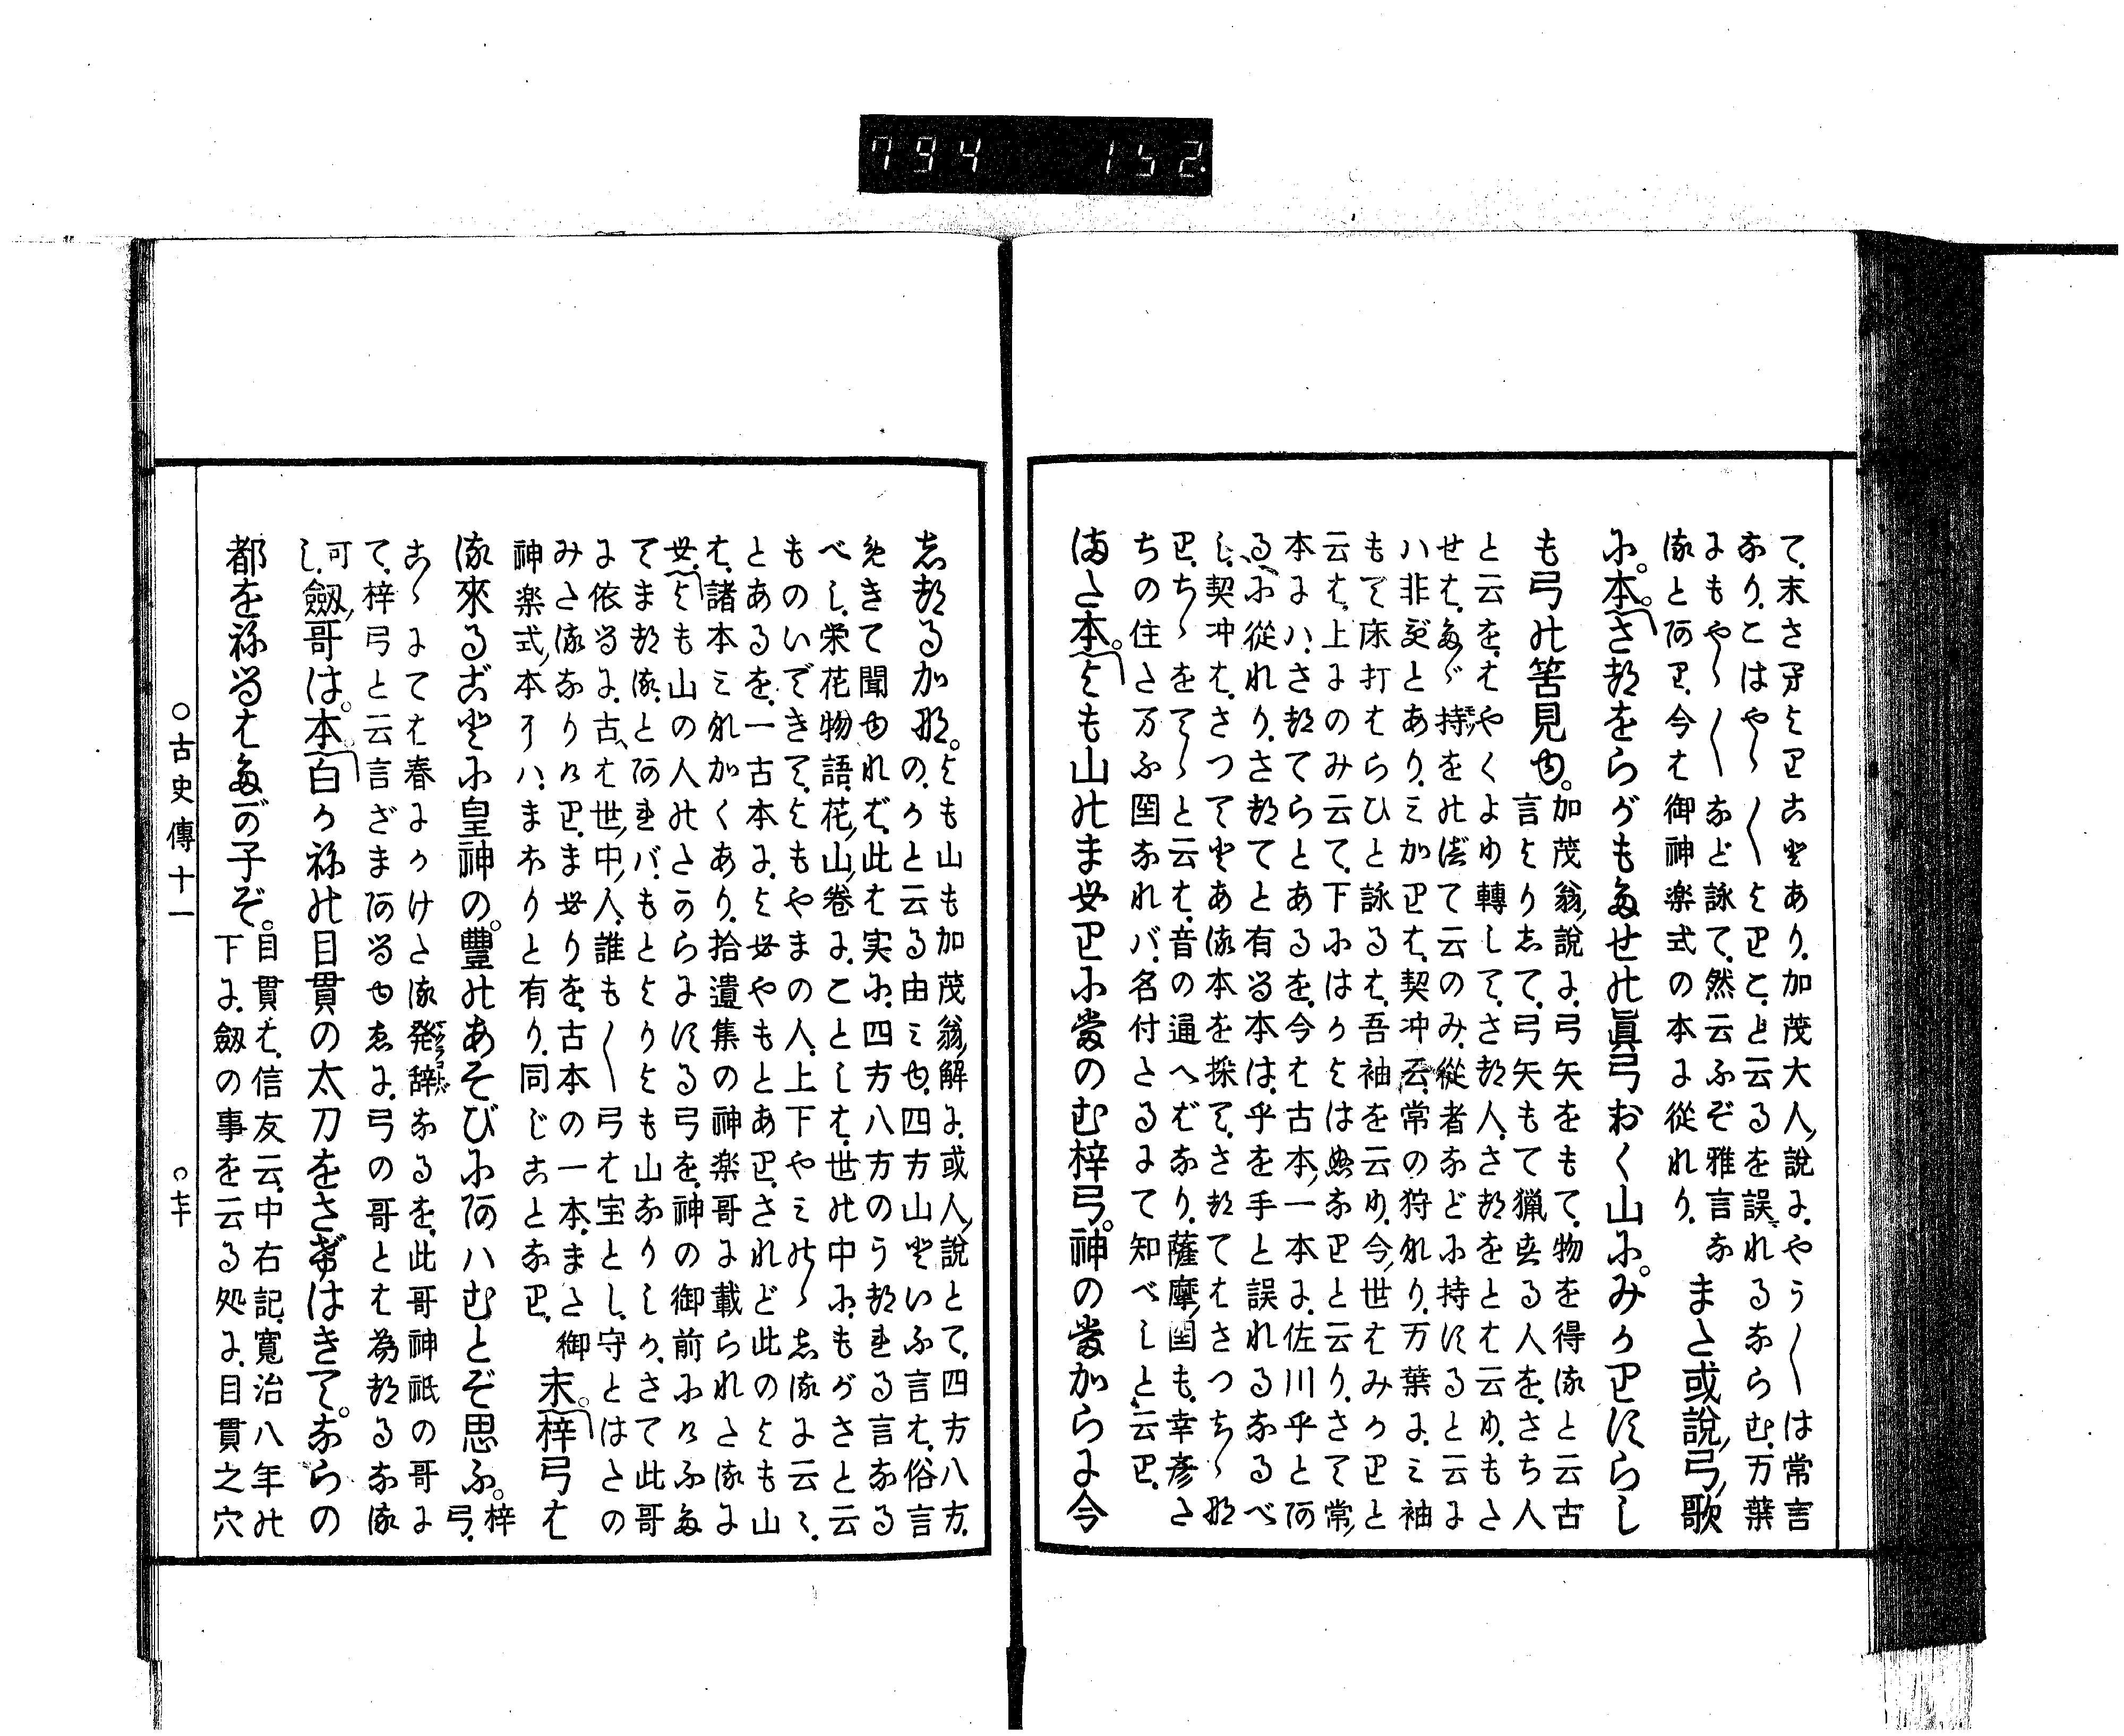 794 152
て、末さ牙よりこゑあり、加茂大人ノ說に、やう〳〵は常言
なり、こはや〻〳〵よりこ、と云るを誤れるならむ、万葉
にもや〻〳〵など詠て、然云ふぞ雅言な
流とあり、今は御神楽式の本に從れり、また或說ノ弓ノ歌
に、本。さつをらがもたせの眞弓おく山に、みかりすらし
も弓の筈見ゆ。加茂翁ノ說に、弓矢をもて、物を得流と云古
言よりして、弓矢もて猟する人を、さち人
と云を、はやくより轉して、さつ人、さつをとは云り、もさ
せは、たゞ持を延て云のみ、從者などに持すると云に
ハ非ずとあり、ミかりは、契冲云、常の狩なり、万葉にミ袖
もて床打はらひと詠るは、吾袖を云り、今ノ世はみかりと
云は、上にのみ云て、下にはかよはぬなりと云り、さて常ノ
本にハ、さつてらとあるを、今は古本ノ一本に、佐川乎とあ
るに從れり、さつてと有る本は、乎を手と誤れるなるべ
し、契冲は、さつてとある本を採て、さつてはさつち〻な
り、ち〻をて〻と云は、音の通へばなり、薩摩ノ国も、幸彦さ
ちの住さ万ふ国なれバ、名付たるにて知べしと、云り、
また本。よも山のまもりに當のむ梓弓。神の當からに今
しつるかな。よも山も加茂翁ノ解に、或人ノ說とて、四方八方、
の、かと云る由ミゆ、四方山といふ言は、俗言
めきて聞ゆれど、此は実に、四方八方のうつれる言なる
べし、栄花物語、花ノ山ノ卷に、ことしは、世の中に、もがさと云
ものいできて、よもやまの人、上下やミの〻しるに云ミ、
とあるを、一古本に、よもやもとあり、されど此のよも山
は、諸本ミなかくあり、拾遺集の神楽哥に載られたるに
も、よも山の人のたからにする弓を、神の御前に今ふた
てまつる、とあれバ、もとよりよも山なりしか、さて此哥
に依るに、古へは世ノ中ノ人、誰も〳〵弓は宝とし、守とはたの
みたるなりけり、まもりを、古本の一本、また御
神楽式ノ本ナハ、まわりと有り、同じことなり、末。梓弓は
流來るごとに皇神の。豐のあそびにあハむとぞ思ふ。梓
弓、
こ〻にては春にかけたる発辞なるを、此哥神祇の哥に
て、梓弓と云言ざまあるゆゑに、弓の哥とは為つるなる
可し、劔ノ哥は。本。白かねの目貫の太刀をさげはきて。ならの
都をねるはたがの子ぞ。目貫は、信友云、中右記、寛治八年の
下に、劔の事を云る処に、目貫之穴
○古史傳十一 ○七十